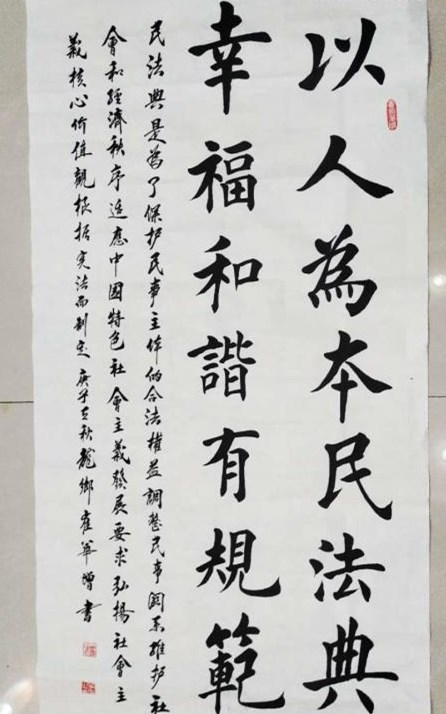 以人為本民法典
幸福和諧有規範
民法典是為了保护民事主体的合法權益調整民事関系維护社
會和經濟秩序适應中國特色社會主義發展要求弘揚社會主
義核心价值觀根据宪法而制定庚子年秋龍鄉崔筆增書